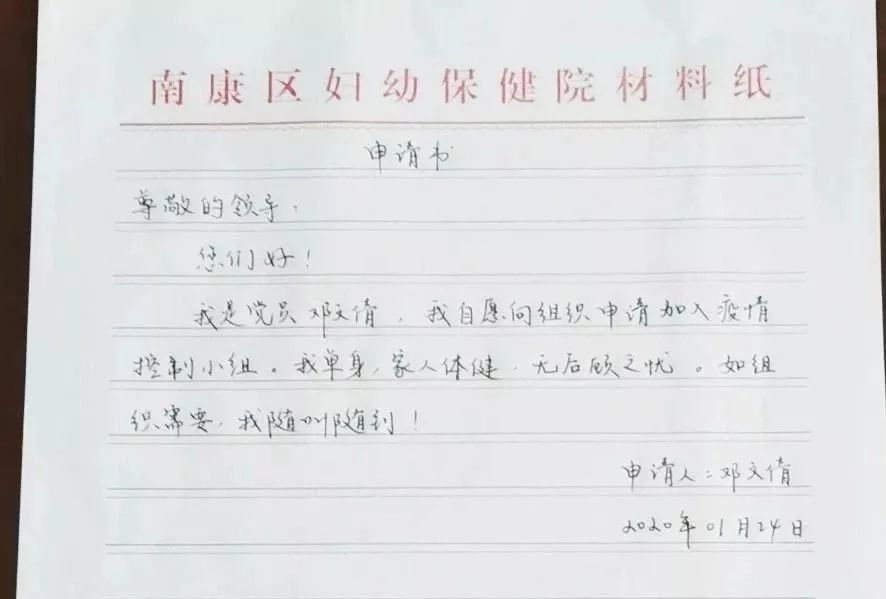 南康区妇幼保健院材料纸
申请书
尊敬的领导：
您们好！
我是党员邓文倩，我自愿向组织申请加入疫情
控制小组。我单身，家人体健，无后顾之忧。如组
织需要，我随叫随到！
申请人：邓文倩
2020年01月24日